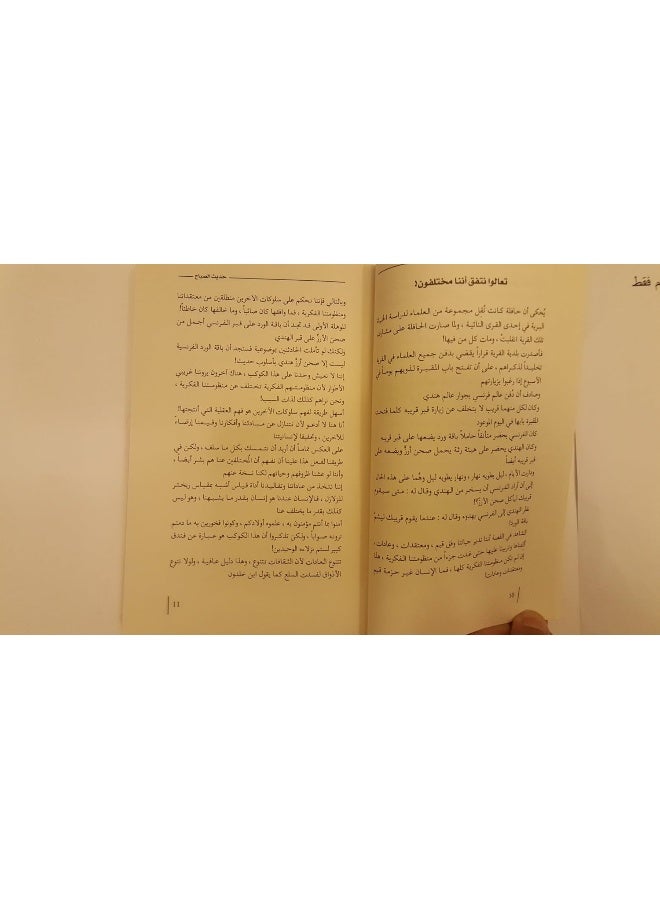 تعالوا نتفق أننا مختلفون!
يُحكى أن حافلة كانت تُقل مجموعة من العلماء لدراسة الحياة
البرية في إحدى القرى النائية، ولما صارت الحافلة على مشارف
تلك القرية انقلبتْ، ومات كل من فيها!
فأصدرت بلدية القرية قراراً يقضي بدفن جميع العلماء في القرية
تخليداً لذكراهم، على أن تفتح باب المقبرة لذويهم يوماً في
الأسبوع إذا رغبوا بزيارتهم
وصادف أن دُفن عالم فرنسي بجوار عالم هندي
وكان لكل منهما قريب لا يتخلف عن زيارة قبر قريبه كلما فتحت
المقبرة بابها في اليوم الموعود
كان الفرنسي يحضر متأنقاً حاملاً باقة ورد يضعها على قبر قريبه
وكان الهندي يحضر على هيئة رثة يحمل صحن أرزٍّ ويضعه على
قبر قريبه أيضاً
ومارت الأيام، ليل يطويه نهار، ونهار يطويه ليل وهُما على هذه الحال
إلى أن أراد الفرنسي أن يسخر من الهندي وقال له: متى سيقوم
قريبك ليأكل صحن الأرزّ؟!
نظر الهندي إلى الفرنسي بهدوء وقال له: عندما يقوم قريبك ليشُمّ
باقة الورد!
الشاهد في القصة أننا ندير حياتنا وفق قيم، ومعتقدات، وعادات
ألفناها وتربينا عليها حتى غدت جزءاً من منظومتنا الفكرية، هذا
إن لم تكن منظومتنا الفكرية كلها، فما الإنسان غير حزمة قيم
ومعتقدات وعادات!
10
حديث الصباح
وبالتالي فإننا نحكم على سلوكات الآخرين منطلقين من معتقداتنا
ومنظومتنا الفكرية، فما وافقها كان صائباً، وما خالفها كان خاطئاً!
للوهلة الأولى قد نجد أن باقة الورد على قبر الفرنسي أجمل من
صحن الأرزّ على قبر الهندي
ولكنك لو تأملت الحادثتين بموضوعية فستجد أن باقة الورد الفرنسية
ليست إلا صحن أرزٍّ هندي بأسلوب حديث!
إننا لا نعيش وحدنا على هذا الكوكب، هناك آخرون يروننا غريبي
الأطوار لأن منظومتهم الفكرية تختلف عن منظومتنا الفكرية،
ونحن نراهم كذلك لذات السبب!
أسهل طريقة لفهم سلوكات الآخرين هو فهم العقلية التي أنتجتها!
أنا هنا لا أدعو لأن نتنازل عن مبادئنا وأفكارنا وقيمنا إرضاءً
للآخرين، وتحقيقاً لإنسانيتنا
على العكس تماماً أن أريد أن نتمسك بكل ما سلف، ولكن في
طريقنا لفعل هذا علينا أن نفهم أن المختلفين عنا هم بشر أيضاً،
وأننا لو عشنا ظروفهم وحياتهم لكنا نسخة عنهم
إننا نتخذ من عاداتنا وتقاليدنا أداة قياس أشبه بمقياس ريختر
للزلازل، فالإنسان عندنا هو إنسان بقدر ما يشبهنا، وهو ليس
كذلك بقدر ما يختلف عنا
آمنوا بما أنتم مؤمنون به، علموه أولادكم، وكونوا فخورين به ما دمتم
ترونه صواباً، ولكن تذكروا أن هذا الكوكب هو عبارة عن فندق
كبير لستم نزلاءه الوحيدين!
تتنوع العادات لأن الثقافات تتنوع، وهذا دليل عافية، ولولا تنوع
الأذواق لفسدت السلع كما يقول ابن خلدون
11
م فقط